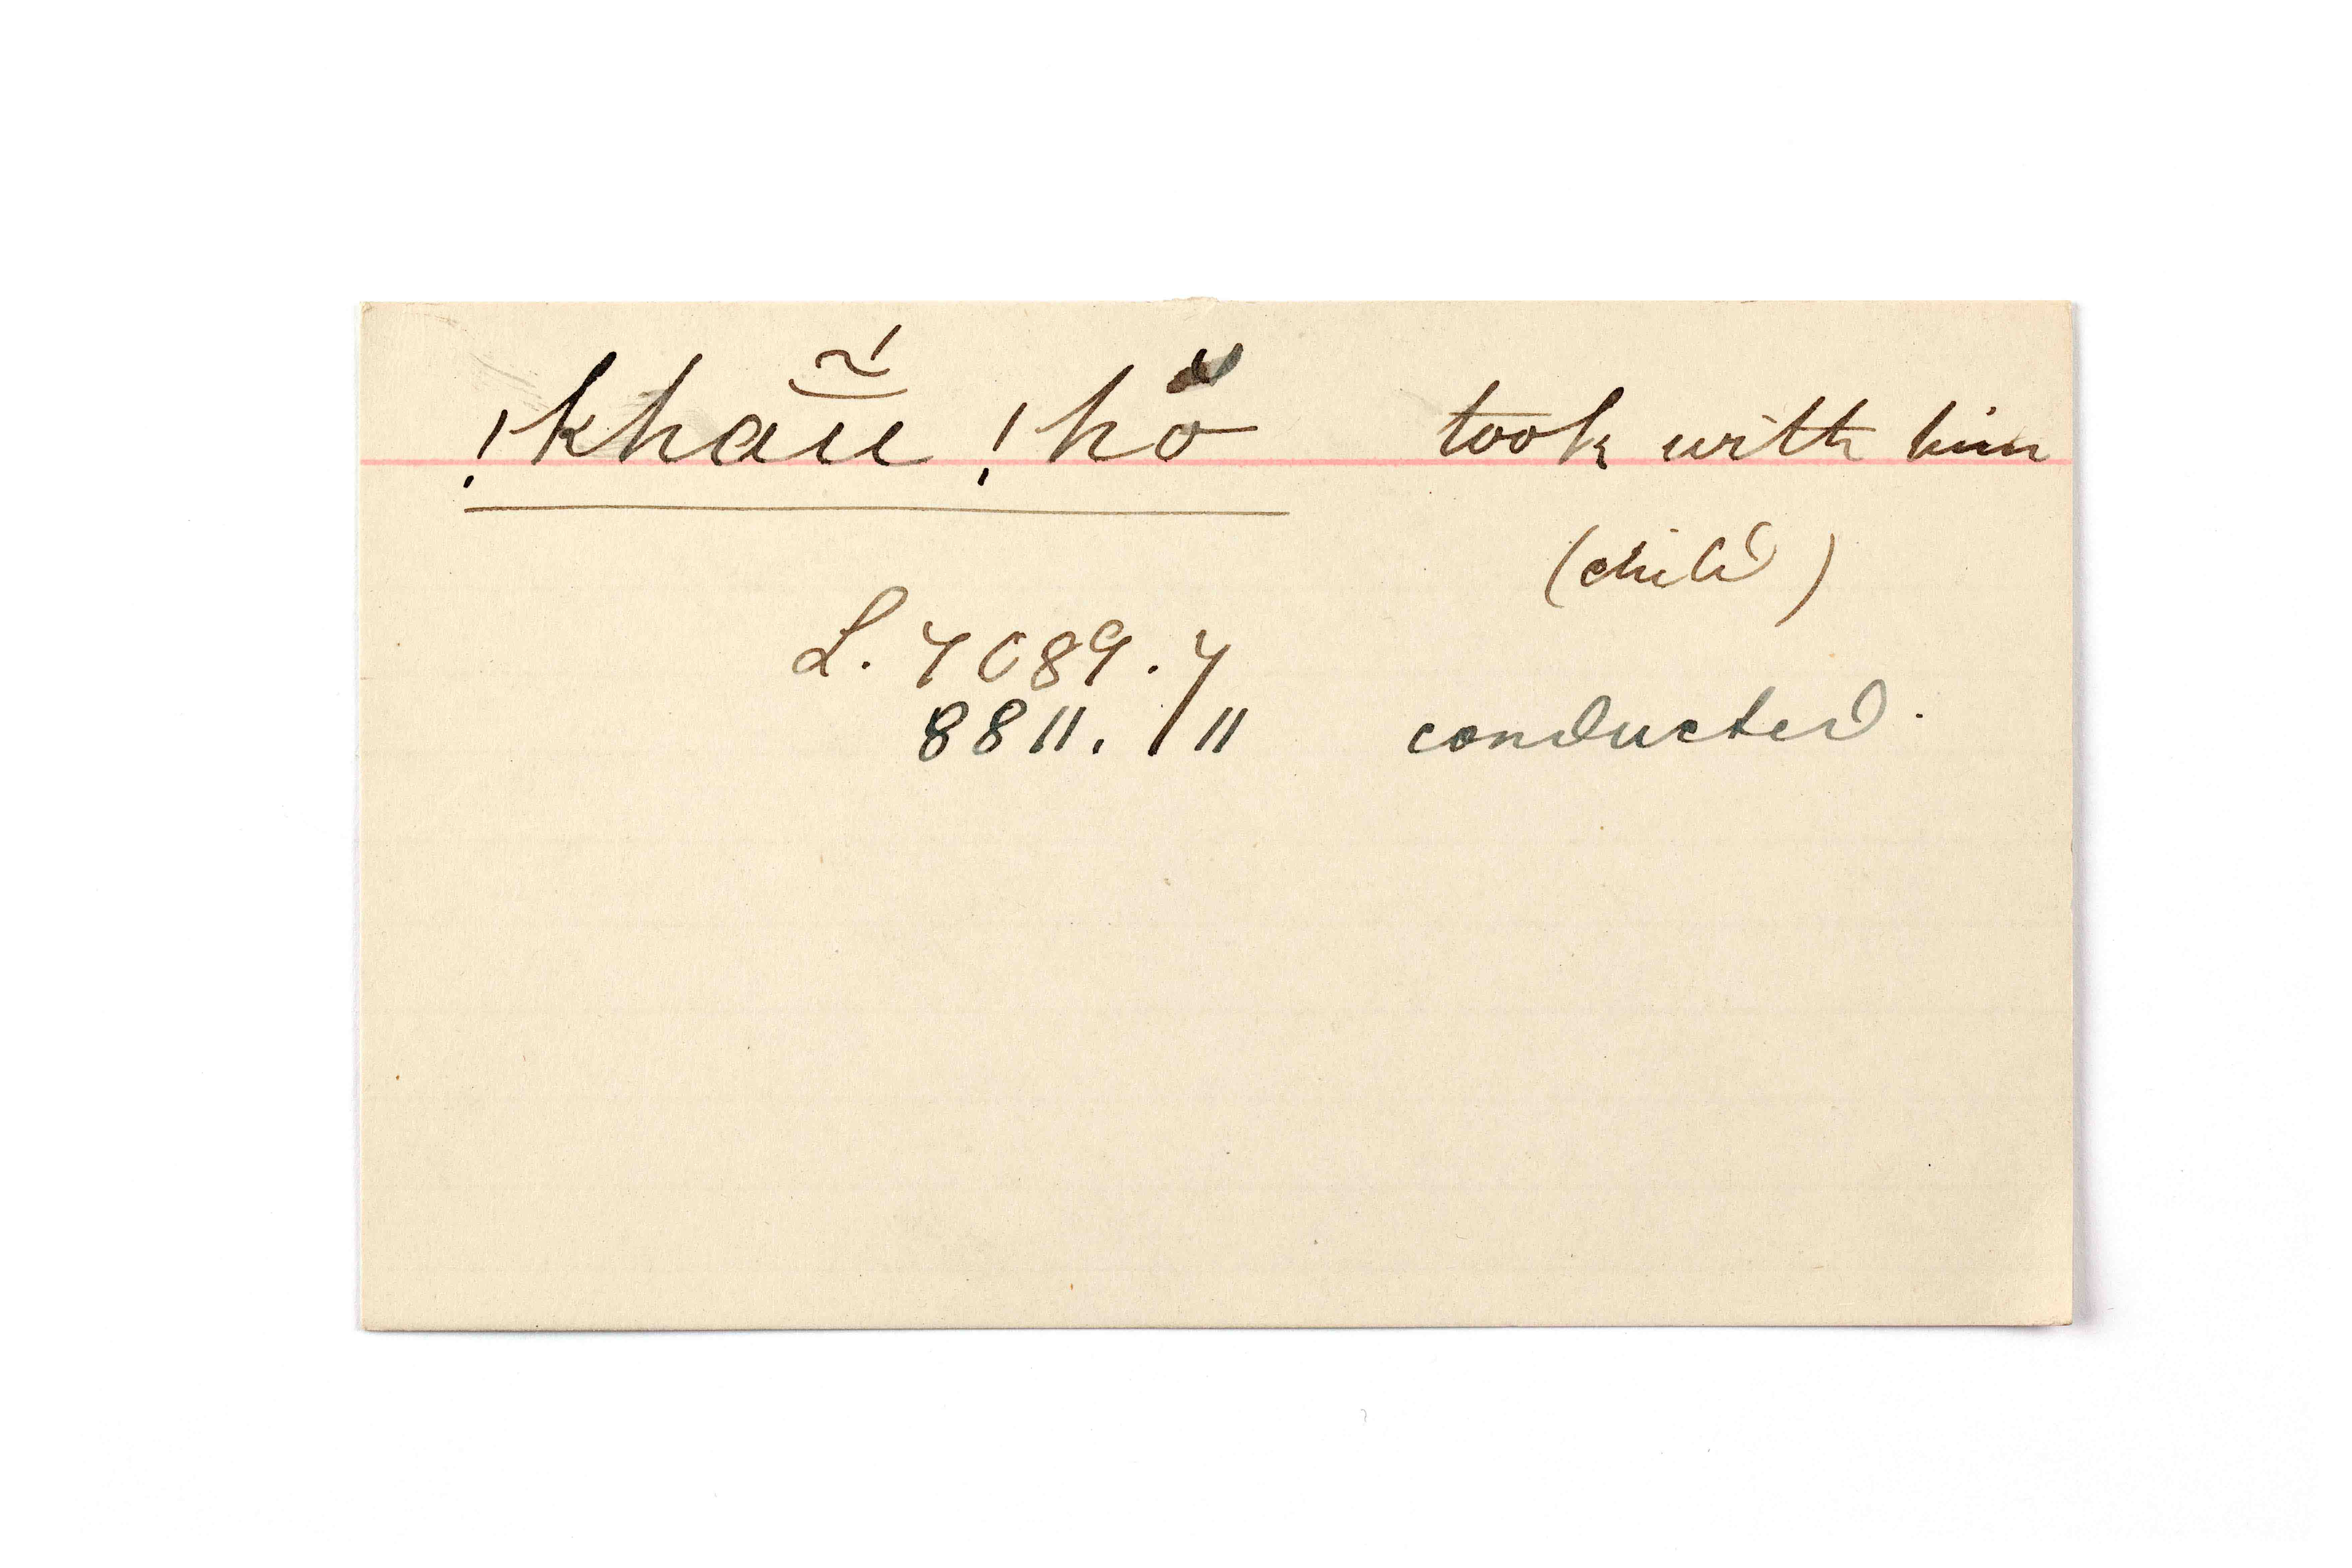 !khãú !hŏ took with him
(child)
L. 7089.7
8811. / 11 conducted.